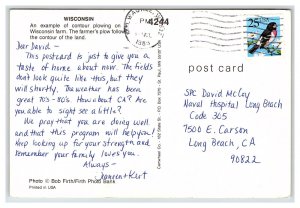 WISCONSIN
An example of contour plowing on
Wisconsin farm. The farmer's plow follows
the contour of the land.
4244
PM
1989
25
USA
post card
Dear David—
This postcard is just to give you a
taste of home about now. The fields
don't look quite like this, but they
will shortly. The weather has been
great 70's-80's. How about CA? Are
you able to sight see a little?
We pray that you are doing well
and that this program will help you!
Keep looking up for your strength and
remember your family loves you.
Always—
& Kurt
SPC David McCay
Naval Hospital Long Beach
Code 365
7500 E. Carson
Long Beach, CA
90822
Photo © Bob Firth/Firth Photo Bank
Printed in USA